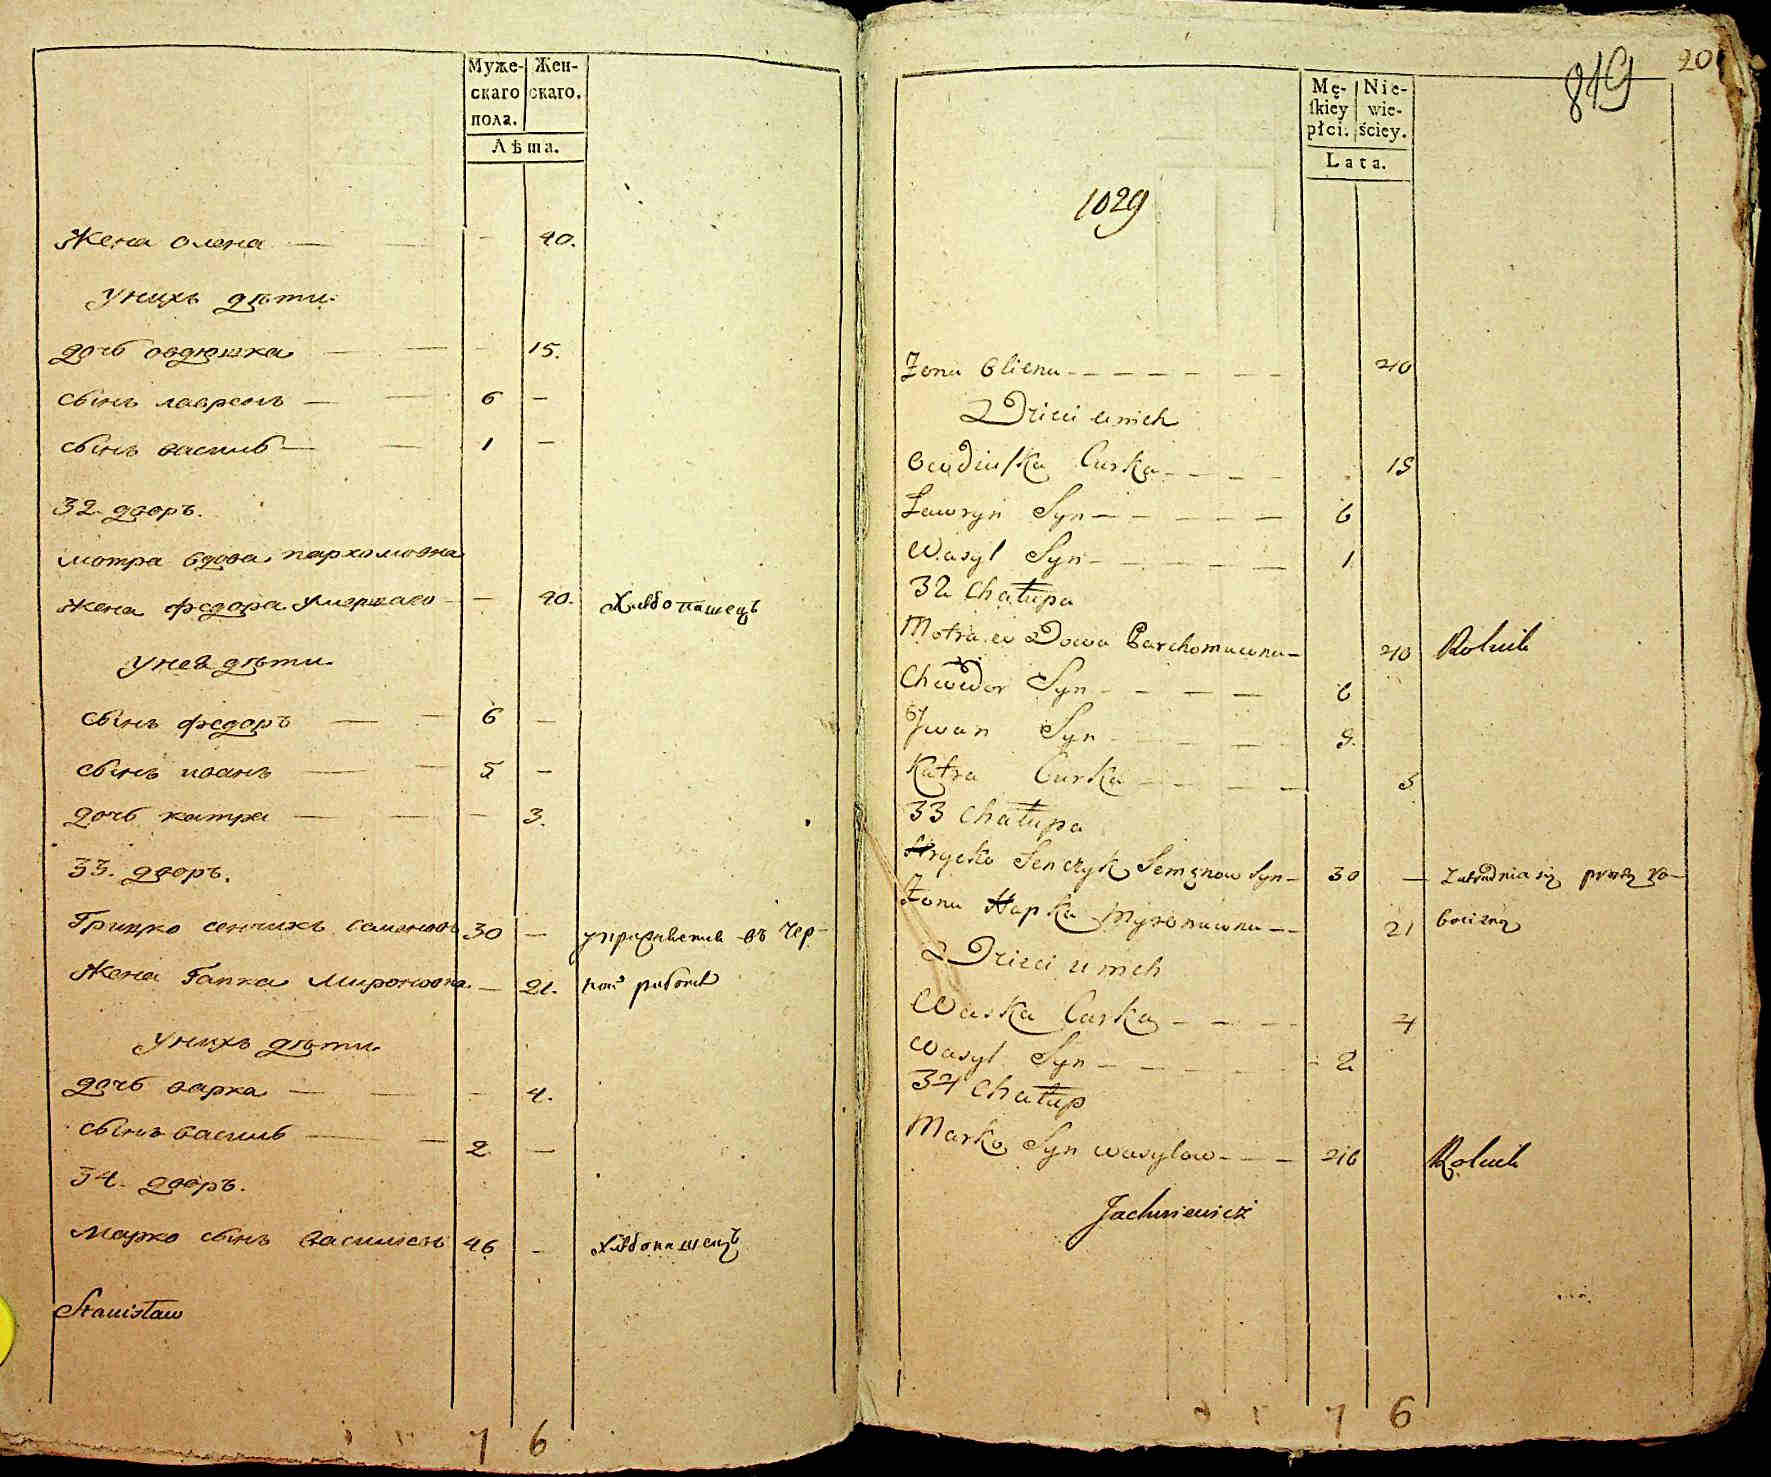 Муже- Жен-
скаго скаго.
пола.
Лѣта.
Жена Олена — — — 40.
у нихъ дѣти.
дочь овдюшка — — — 15.
сынъ лавренъ — — 6 —
сынъ василь — — 1 —
32. дворъ.
мотра вдова пархомовна
жена федора умершаго — — 40. Хлѣбопашецъ
у неѣ дѣти
сынъ федоръ — — 6 —
сынъ иванъ — — 5 —
дочь катра — — — 3.
33. дворъ.
Грицко сенчикъ Семеновъ 30 — упражняется въ чер-
Жена Гапка Мироновна. — 21. ной работѣ
у нихъ дѣти.
дочь варка — — — 4.
сынъ василь — — 2 —
34. дворъ.
Марко сынъ Василиевъ 46 — Хлѣбопашецъ
Stanisław
7 6
20
819
Mę- Nie-
ſkiey wie-
płci. ściey.
Lata.
1029
Zona Oliena — — — — — — 40
Dzieci u nich
Owdiuſka Curka — — — — 15
Ławryn Syn — — — — — 6
Wasyl Syn — — — — — 1
32 Chałupa
Motra w Dowa Parchomuwna — 40 Rolnik
Chwedor Syn — — — — 6
Jwan Syn — — — — 5.
Katra Curka — — — — 3
33 Chałupa
Hrycko Senczyk Semenow Syn — 30 — Zatrudnia się prostą ro-
Zona Hapka Myronuwna — — 21 bocizną
Dzieci u nich
Warka Curka — — — — 4
Wasyl Syn — — — — — 2
34 Chałup
Marko Syn wasylow — — — 46 Rolnik
Jachniewicz
7 6